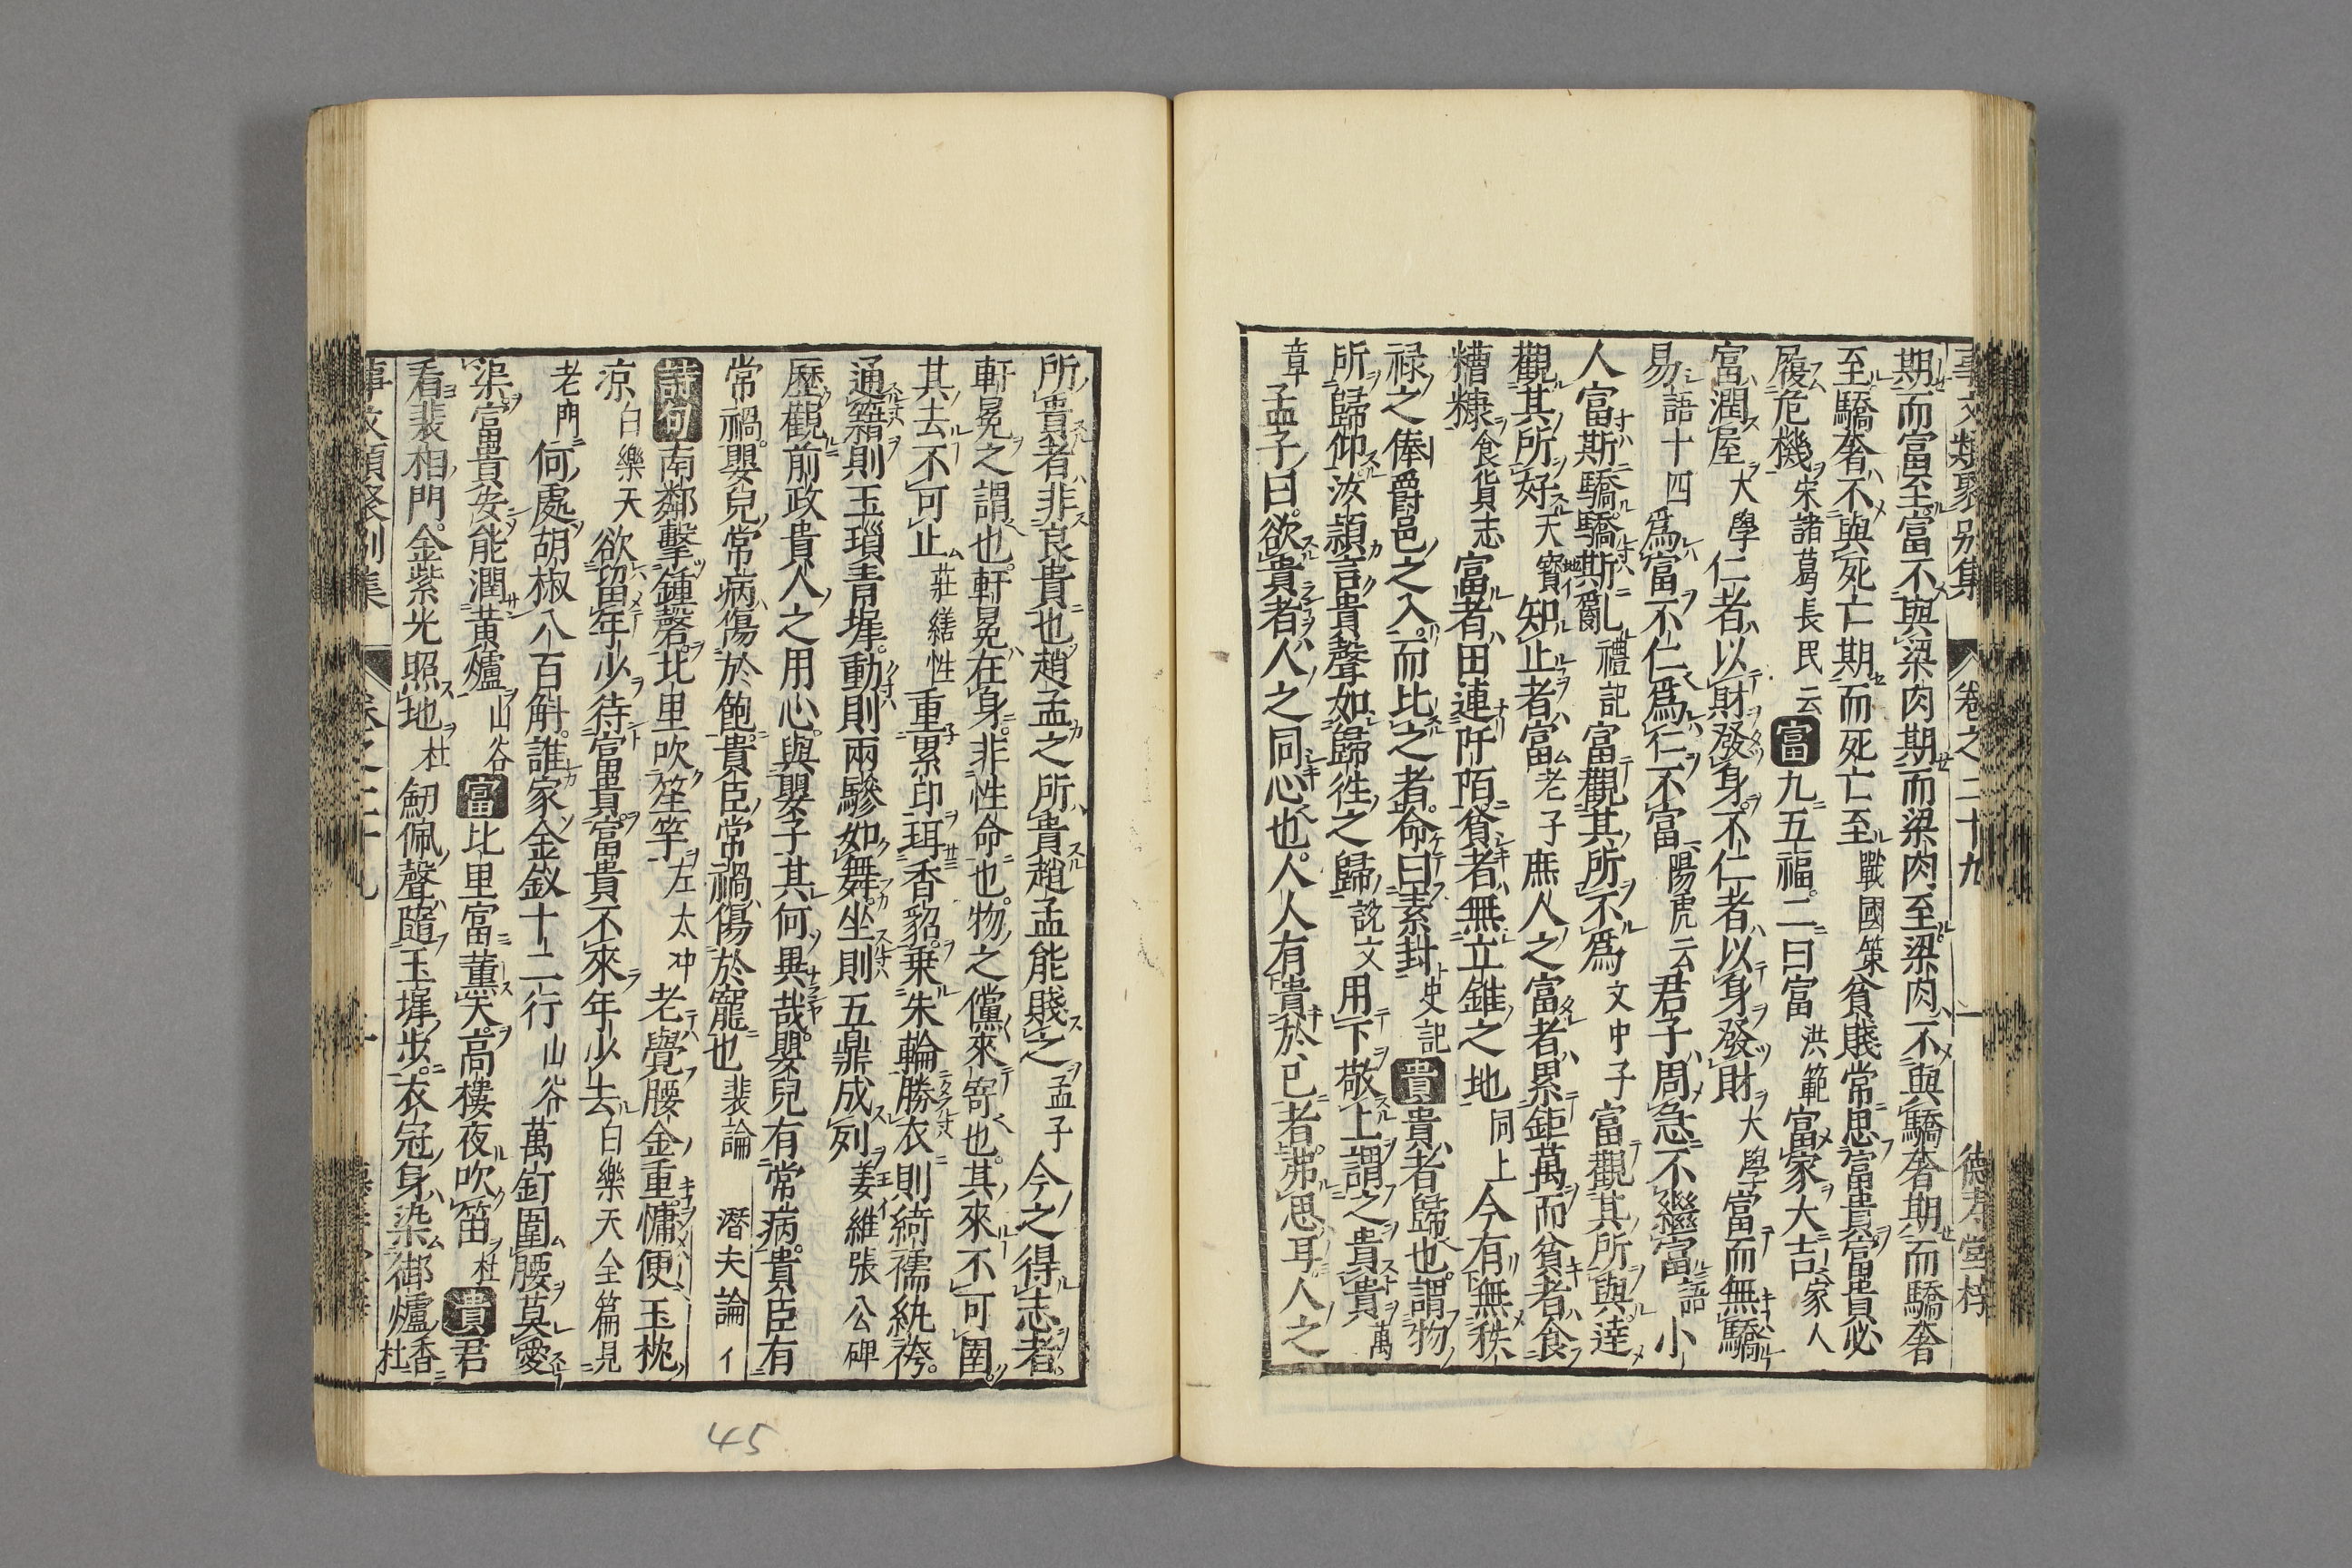 事文類聚别集 卷之二十九 一 德壽堂梓
期而富至富不與梁肉期而梁肉至梁肉不與驕奢期而驕奢
至驕奢不與死亡期而死亡至戰國策貧賤常思富貴富貴必
履危機宋諸葛長民云富九五福二曰富洪範富家大吉家人
富潤屋大學仁者以財發身不仁者以身發財大學富而無驕
易語十四爲富不仁爲仁不富陽虎云君子周急不繼富語小
人富斯驕驕斯亂禮記富觀其所不爲文中子富觀其所與逹
觀其所好天寳知止者富老子庶人之富者累鉅萬而貧者食
糟糠食貨志富者田連阡陌貧者無立錐之地同上今有無秩
禄之俸爵邑之入而比之者命曰素封史記貴貴者歸也謂物
所歸仰汝潁言貴聲如歸徃之歸說文用下敬上謂之貴貴萬
章孟子曰欲貴者人之同心也人人有貴於己者弗思耳人之
所貴者非良貴也趙孟之所貴趙孟能賤之孟子今之得志者
軒冕之謂也軒冕在身非性命也物之儻來寄也其來不可圉
其去不可止莊繕性重累印珥香貂乗朱輪勝衣則綺襦紈袴
通籍則玉瑣青墀動則兩驂如舞坐則五鼎成列姜維張公碑
歷觀前政貴人之用心與嬰子其何異哉嬰兒有常病貴臣有
常禍嬰兒常病傷於飽貴臣常禍傷於寵也裴論 潛夫論イ
詩句南鄰擊鍾磬北里吹笙竽左太冲老覺腰金重慵便玉枕
凉白樂天欲留年少待富貴富貴不來年少去白樂天全篇見
老門何處胡椒八百斛誰家金釵十二行山谷萬釘圍腰莫愛
渠富貴安能潤黄爐山谷富比里富薰天高樓夜吹笛杜貴君
看裴相門金紫光照地杜劒佩聲隨玉墀步衣冠身染御爐香杜